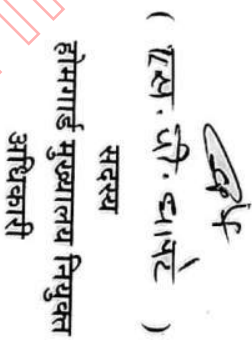 ( एस. जी. थापटे )
सदस्य
होमगार्ड मुख्यालय नियुक्त
अधिकारी